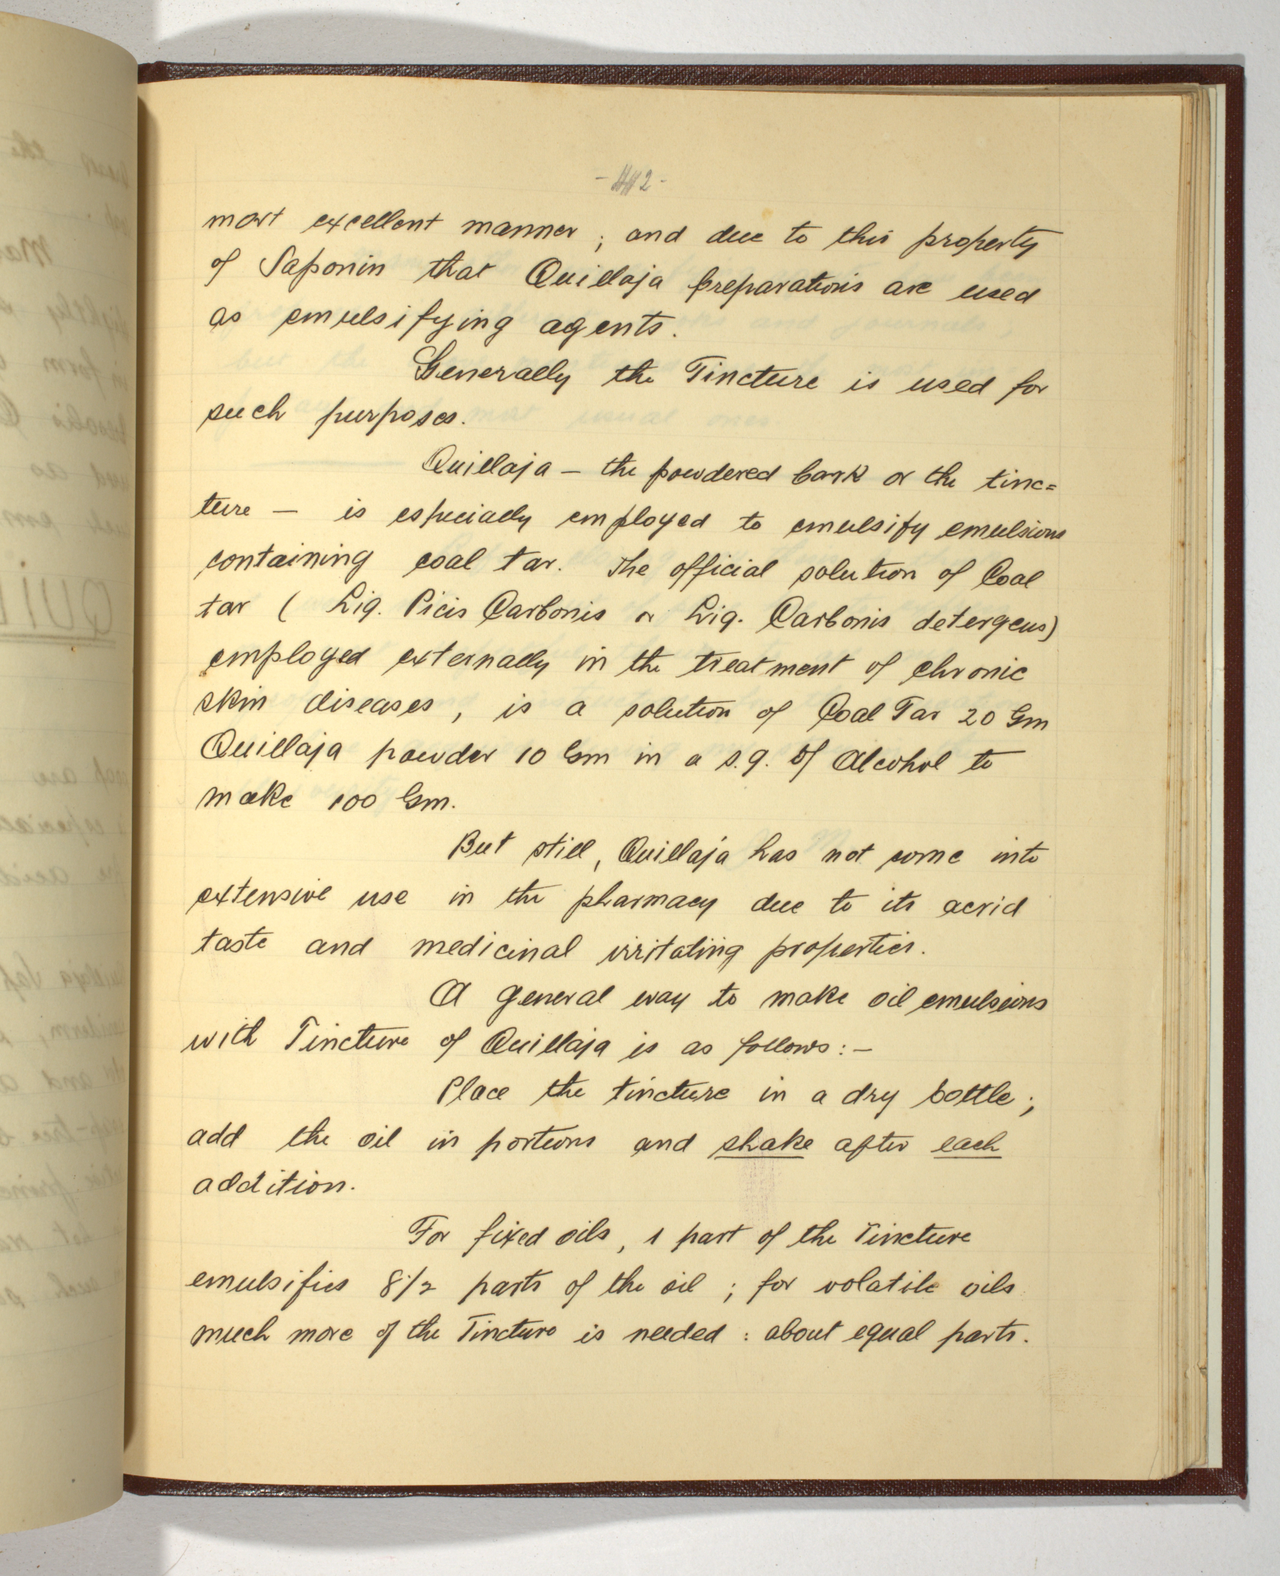 most excellent manner; and due to this property
of Saponin that Quillaja preparations are used
as emulsifying agents.
Generally the Tincture is used for
such purposes.
Quillaja – the powdered bark or the tinc=
ture – is especially employed to emulsify emulsions
containing coal tar. The official solution of Coal
tar ( Liq. Picis Carbonis or Liq. Carbonis detergens)
employed externally in the treatment of chronic
skin diseases, is a solution of Coal Tar 20 Gm
Quillaja powder 10 Gm in a s.q. of Alcohol to
make 100 Gm.
But still, Quillaja has not come into
extensive use in the pharmacy due to its acrid
taste and medicinal irritating properties.
A general way to make oil emulsions
with Tincture of Quillaja is as follows:–
Place the tincture in a dry bottle;
add the oil in portions and shake after each
addition.
For fixed oils, 1 part of the Tincture
emulsifies 8 1/2 parts of the oil; for volatile oils
much more of the Tincture is needed: about equal parts.